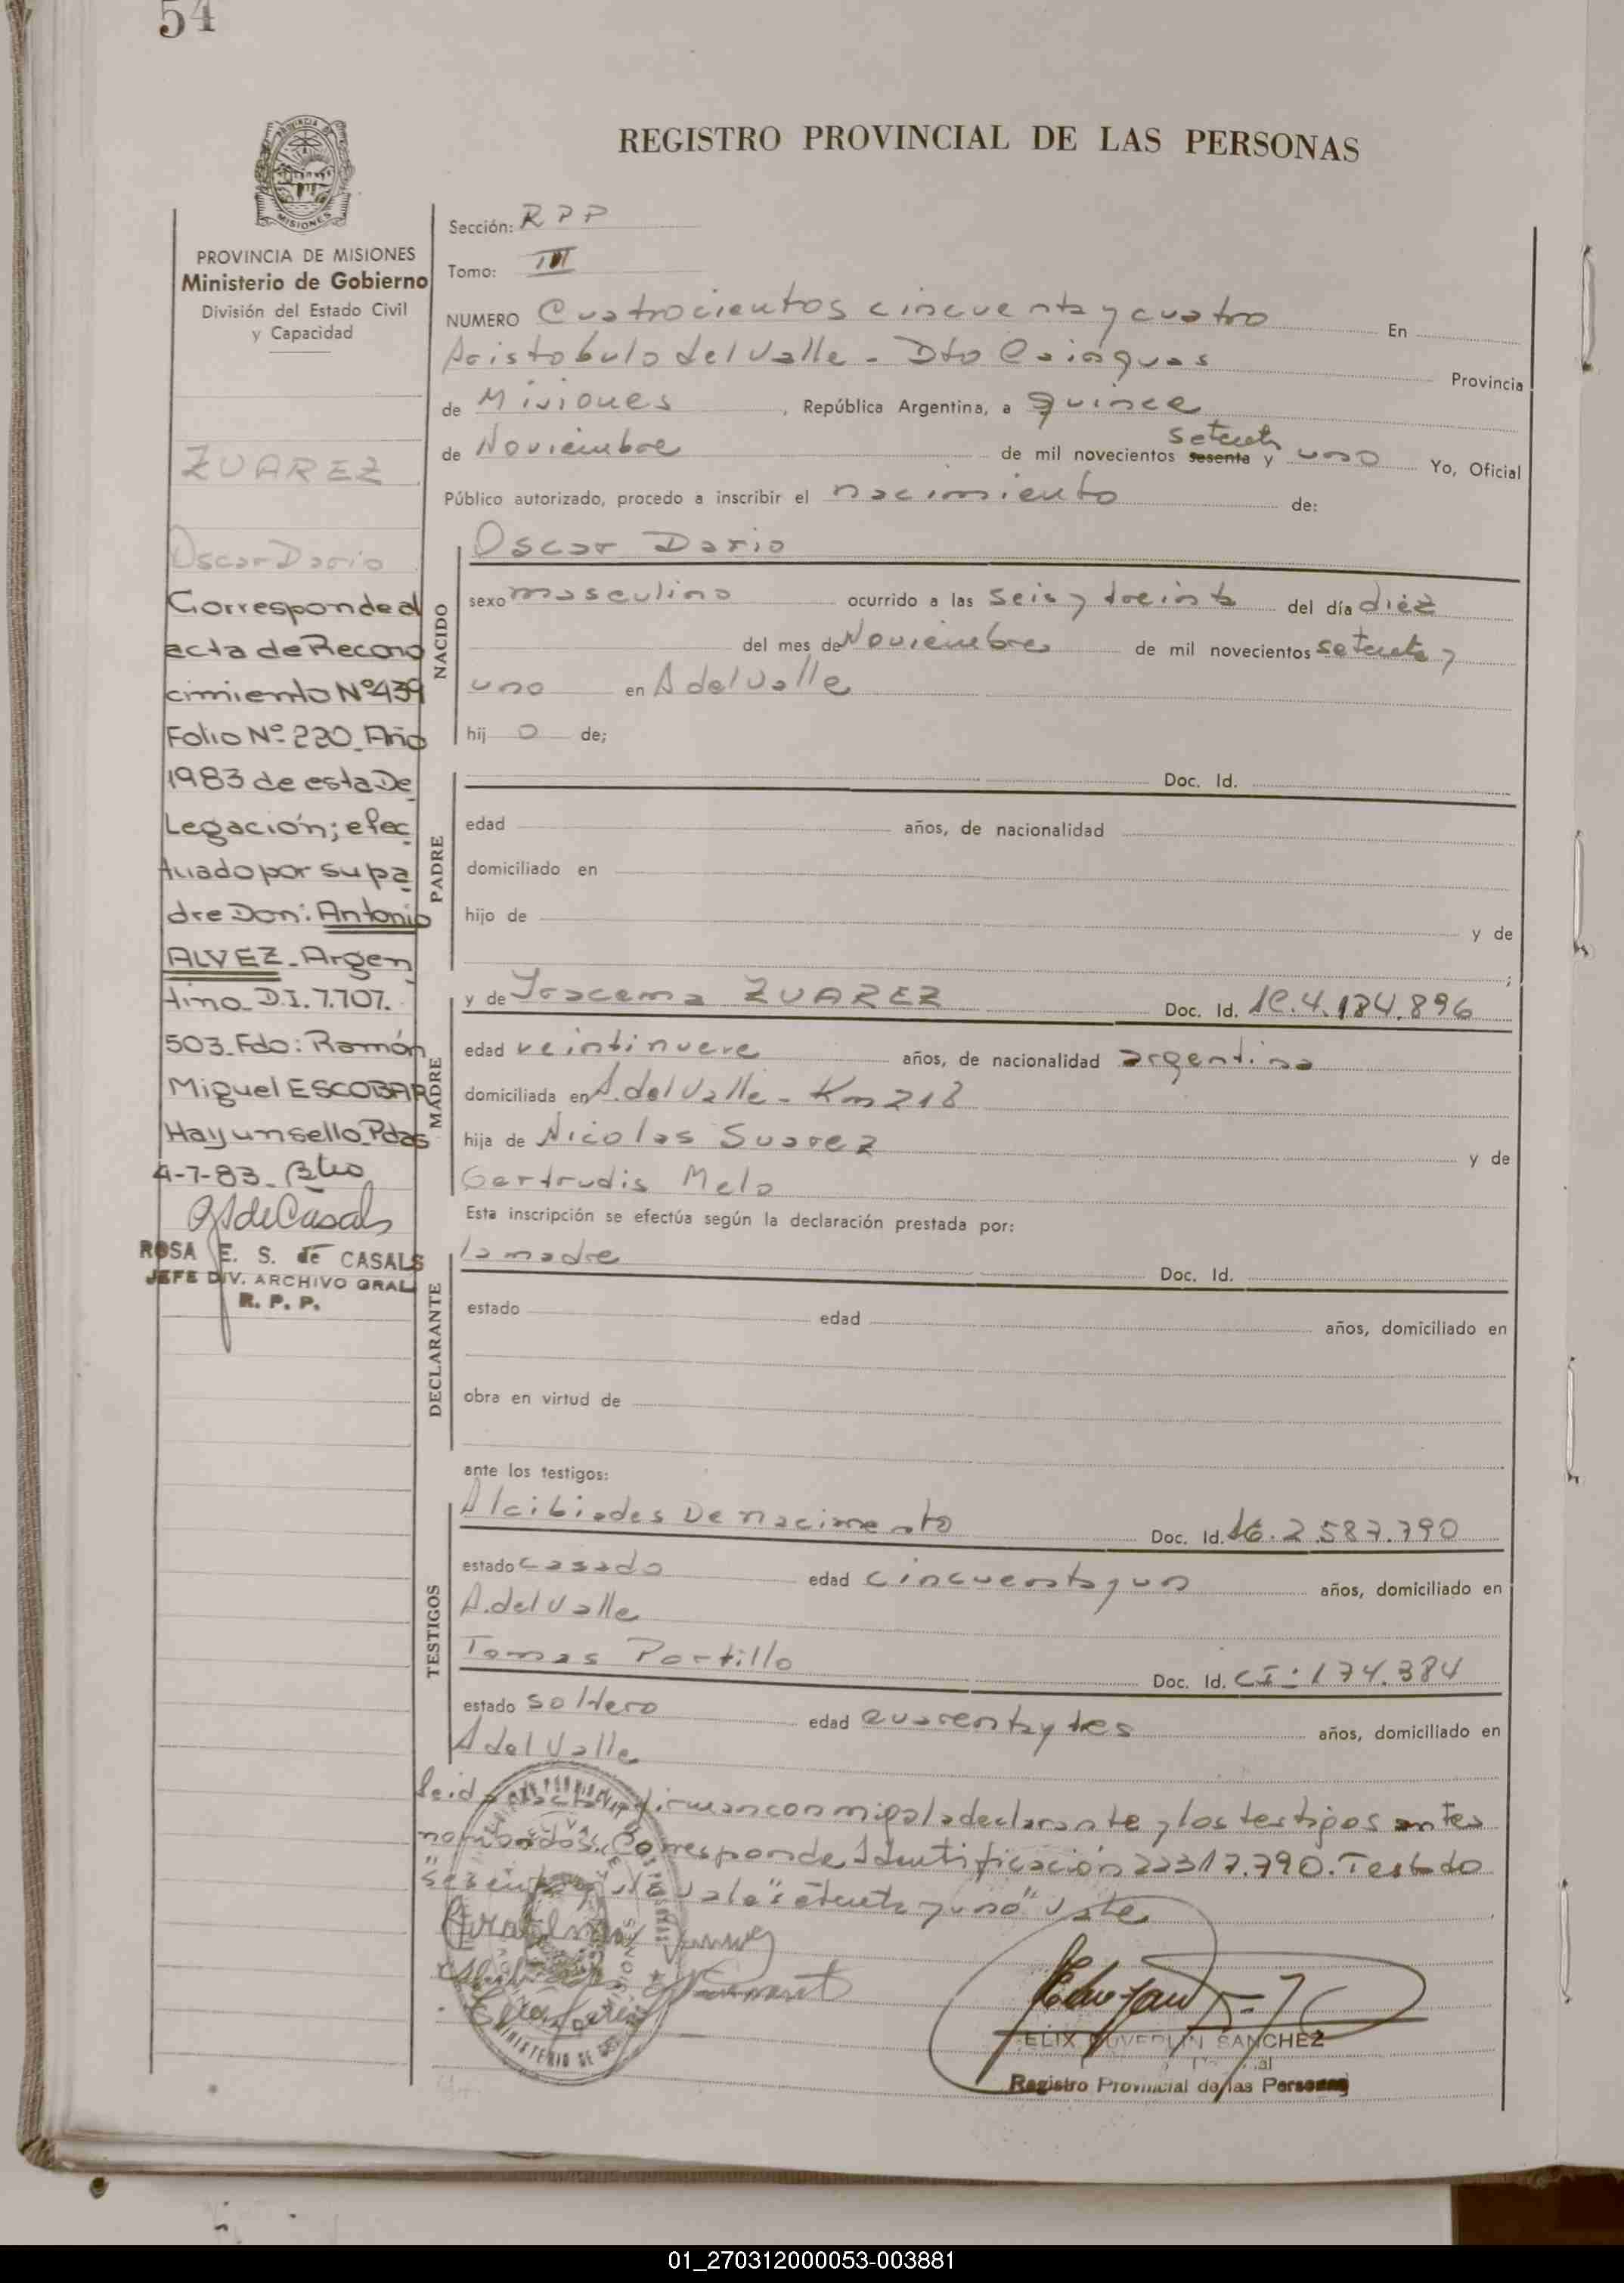 54
REGISTRO PROVINCIAL DE LAS PERSONAS
PROVINCIA DE MISIONES
Ministerio de Gobierno
División del Estado Civil
y Capacidad
ZUAREZ
Oscar Dario
Corresponde al
acta de Recono
cimiento Nº 439
Folio Nº 220. Año
1983 de esta De
Legación; efec
tuado por su pa
dre Don: Antonio
ALVEZ. Argen
tino. D.I. 7.707.
503. Fdo: Ramón
Miguel ESCOBAR
Hay un sello. Pdas
4-7-83.
ROSA E. S. de CASALS
JEFE DIV. ARCHIVO GRAL
R. P. P.
Sección: RPP
Tomo: III
NUMERO Cuatrocientos cincuenta y cuatro En
Aristobulo del Valle - Dto Cainguas Provincia
de Misiones, República Argentina, a quince
setenta
de Noviembre de mil novecientos sesenta y uno Yo, Oficial
Público autorizado, procedo a inscribir el nacimiento de:
NACIDO
Oscar Dario
sexo masculino ocurrido a las seis y treinta del día diez
del mes de Noviembre de mil novecientos setenta y
uno en A del Valle
hij o de;
PADRE
Doc. Id.
edad años, de nacionalidad
domiciliado en
hijo de y de
;
MADRE
y de Iracema ZUAREZ Doc. Id. LC. 4.184.896
edad veintinueve años, de nacionalidad argentina
domiciliada en A. del Valle - Km 218
hija de Nicolas Suarez y de
Gertrudis Melo
Esta inscripción se efectúa según la declaración prestada por:
DECLARANTE
la madre Doc. Id.
estado edad años, domiciliado en
obra en virtud de
ante los testigos:
TESTIGOS
Alcibiades De nacimento Doc. Id. 2.587.790
estado casado edad cincuenta y un años, domiciliado en
A. del Valle
Tomas Portillo Doc. Id. CI: 174.384
estado soltero edad cuarenta y tres años, domiciliado en
A del Valle
Leid acta firman conmigo la declarante y los testigos antes
nombrados. Corresponde Identificación 22317.790. Testado
"sesenta" vale "setenta y uno" Vale
FELIX SANCHEZ
Registro Provincial de las Personas
01_270312000053-003881